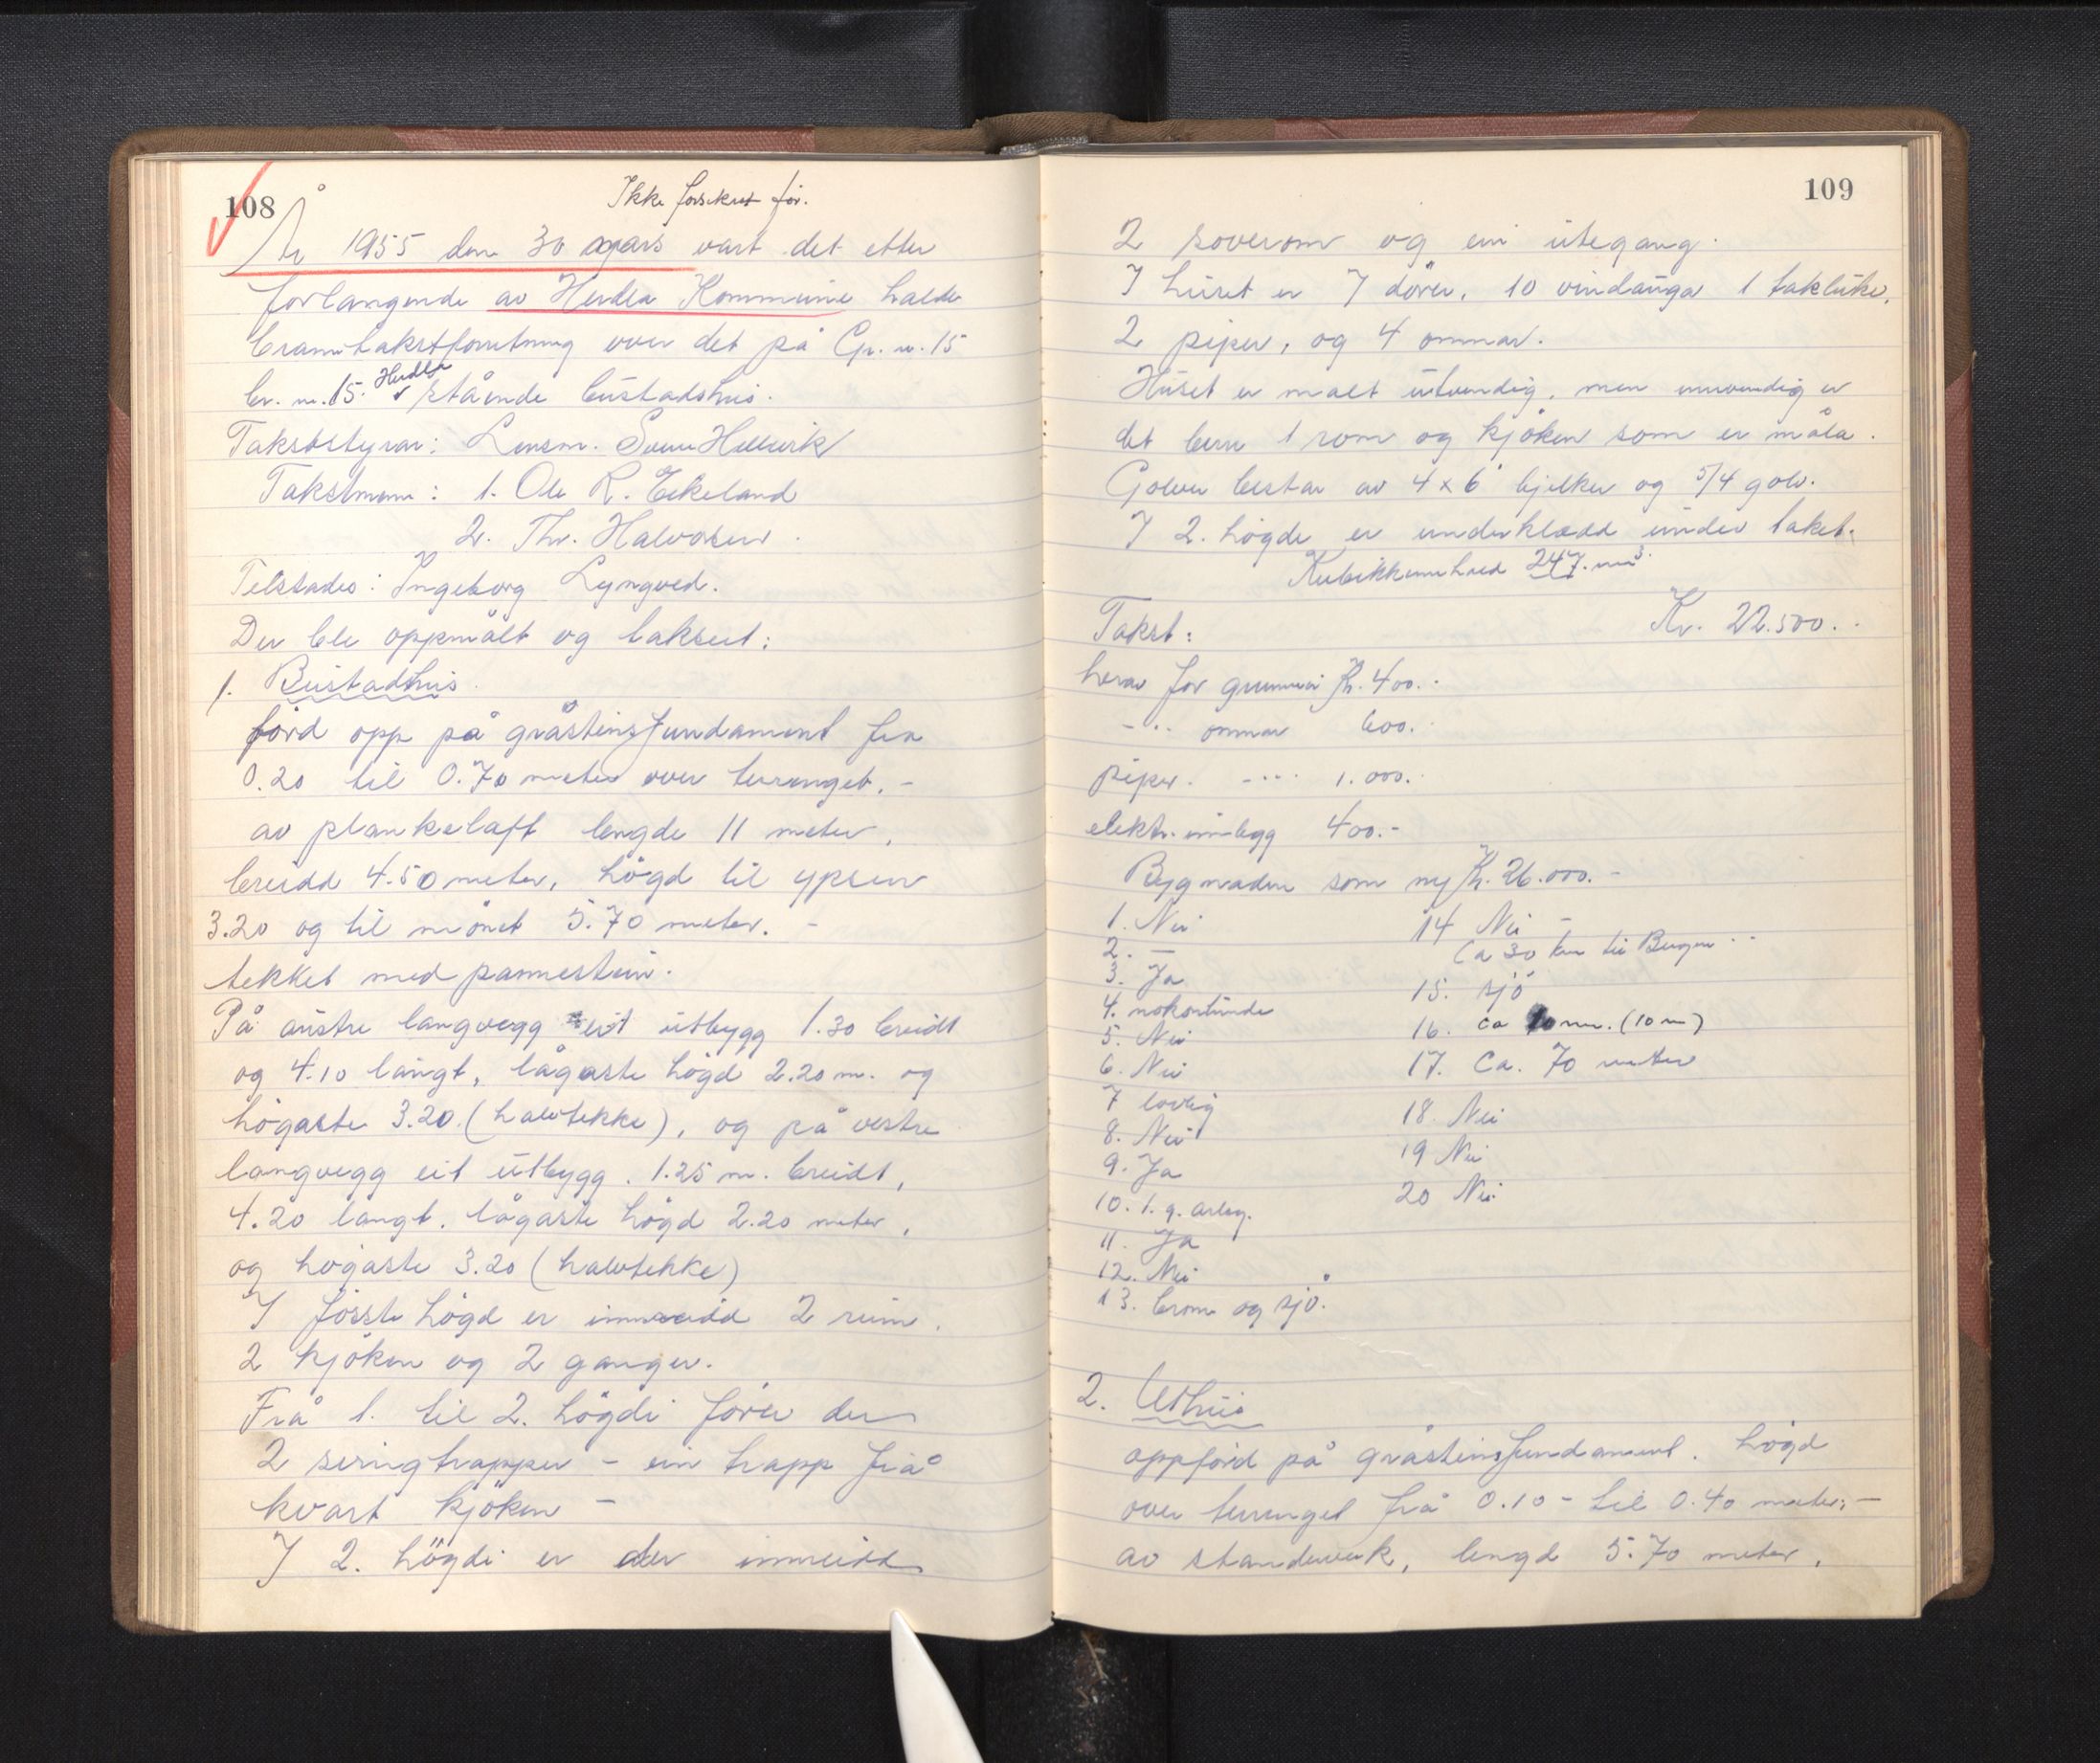 108
Ikke forsikret før.
År 1955 den 30 mars vart det etter
forlangende av Herdla Kommune halde
branntakstforretning over det på Gr. nr. 15
br. nr. 15. Herdla stående bustadshus.
Takststyrar: Lensm.
Takstmenn: 1. Ole R. Eikeland
2. Thr. Halvorsen.
Tilstades: Ingeborg Lyngved.
Der ble oppmålt og taksert:
1. Bustadhus.
förd opp på gråsteinsfundament fra
0.20 til 0.70 meter over terrenget. -
av plankelaft lengde 11 meter,
breidd 4.50 meter, högd til ypsen
3.20 og til mönet 5.70 meter. -
tekket med pannestein.
På austre langvegg eit utbygg 1.30 breidt
og 4.10 langt, lågaste högd 2.20 m. og
högaste 3.20. (halvtekke), og på vestre
langvegg eit utbygg. 1.25 m. breidt,
4.20 langt. lågaste högd 2.20 meter,
og högaste 3.20 (halvtekke)
I första högd er innreidd 2 rum.
2 kjöken og 2 ganger.
Frå 1. til 2. högdi förer der
2 svingtrapper - ein trapp frå
kvart kjöken -
I 2. högdi er der innreidd
109
2 soverom og ein utegang.
I huset er 7 dörer, 10 vindauga 1 takluke,
2 piper, og 4 omnar.
Huset er malt utvendig, men innvendig er
det bere 1 rom og kjöken som er måla.
Golver bestar av 4 x 6" bjelker og 5/4 golv.
I 2. högde er underklædd under taket.
Kubikkinnhold 247. m³.
Takst: Kr. 22.500..
herav for grunnmur Kr. 400.-
- .. omnar 600.
piper. - .... 1.000.
elektr. innlegg 400.-
Bygnaden som ny Kr. 26.000.-
1. Nei
2. -
3. Ja
4. nokonlunde
5. Nei
6. Nei
7 lovlig
8. Nei
9. Ja
10. 1. g. arleg.
11. Ja
12. Nei
13. brom og sjö.
14 Nei -
Ca 30 km til Bergen ..
15. sjö
16. ca 10 m. (10 m)
17. Ca. 70 meter
18. Nei
19 Nei
20 Nei
2. Uthus
oppförd på gråsteinsfundament. högd
over terrenget frå 0.10 - til 0.40 meter. -
av standerverk, lengd 5.70 meter,